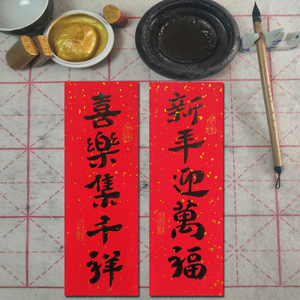 新年迎萬福
喜樂集千祥